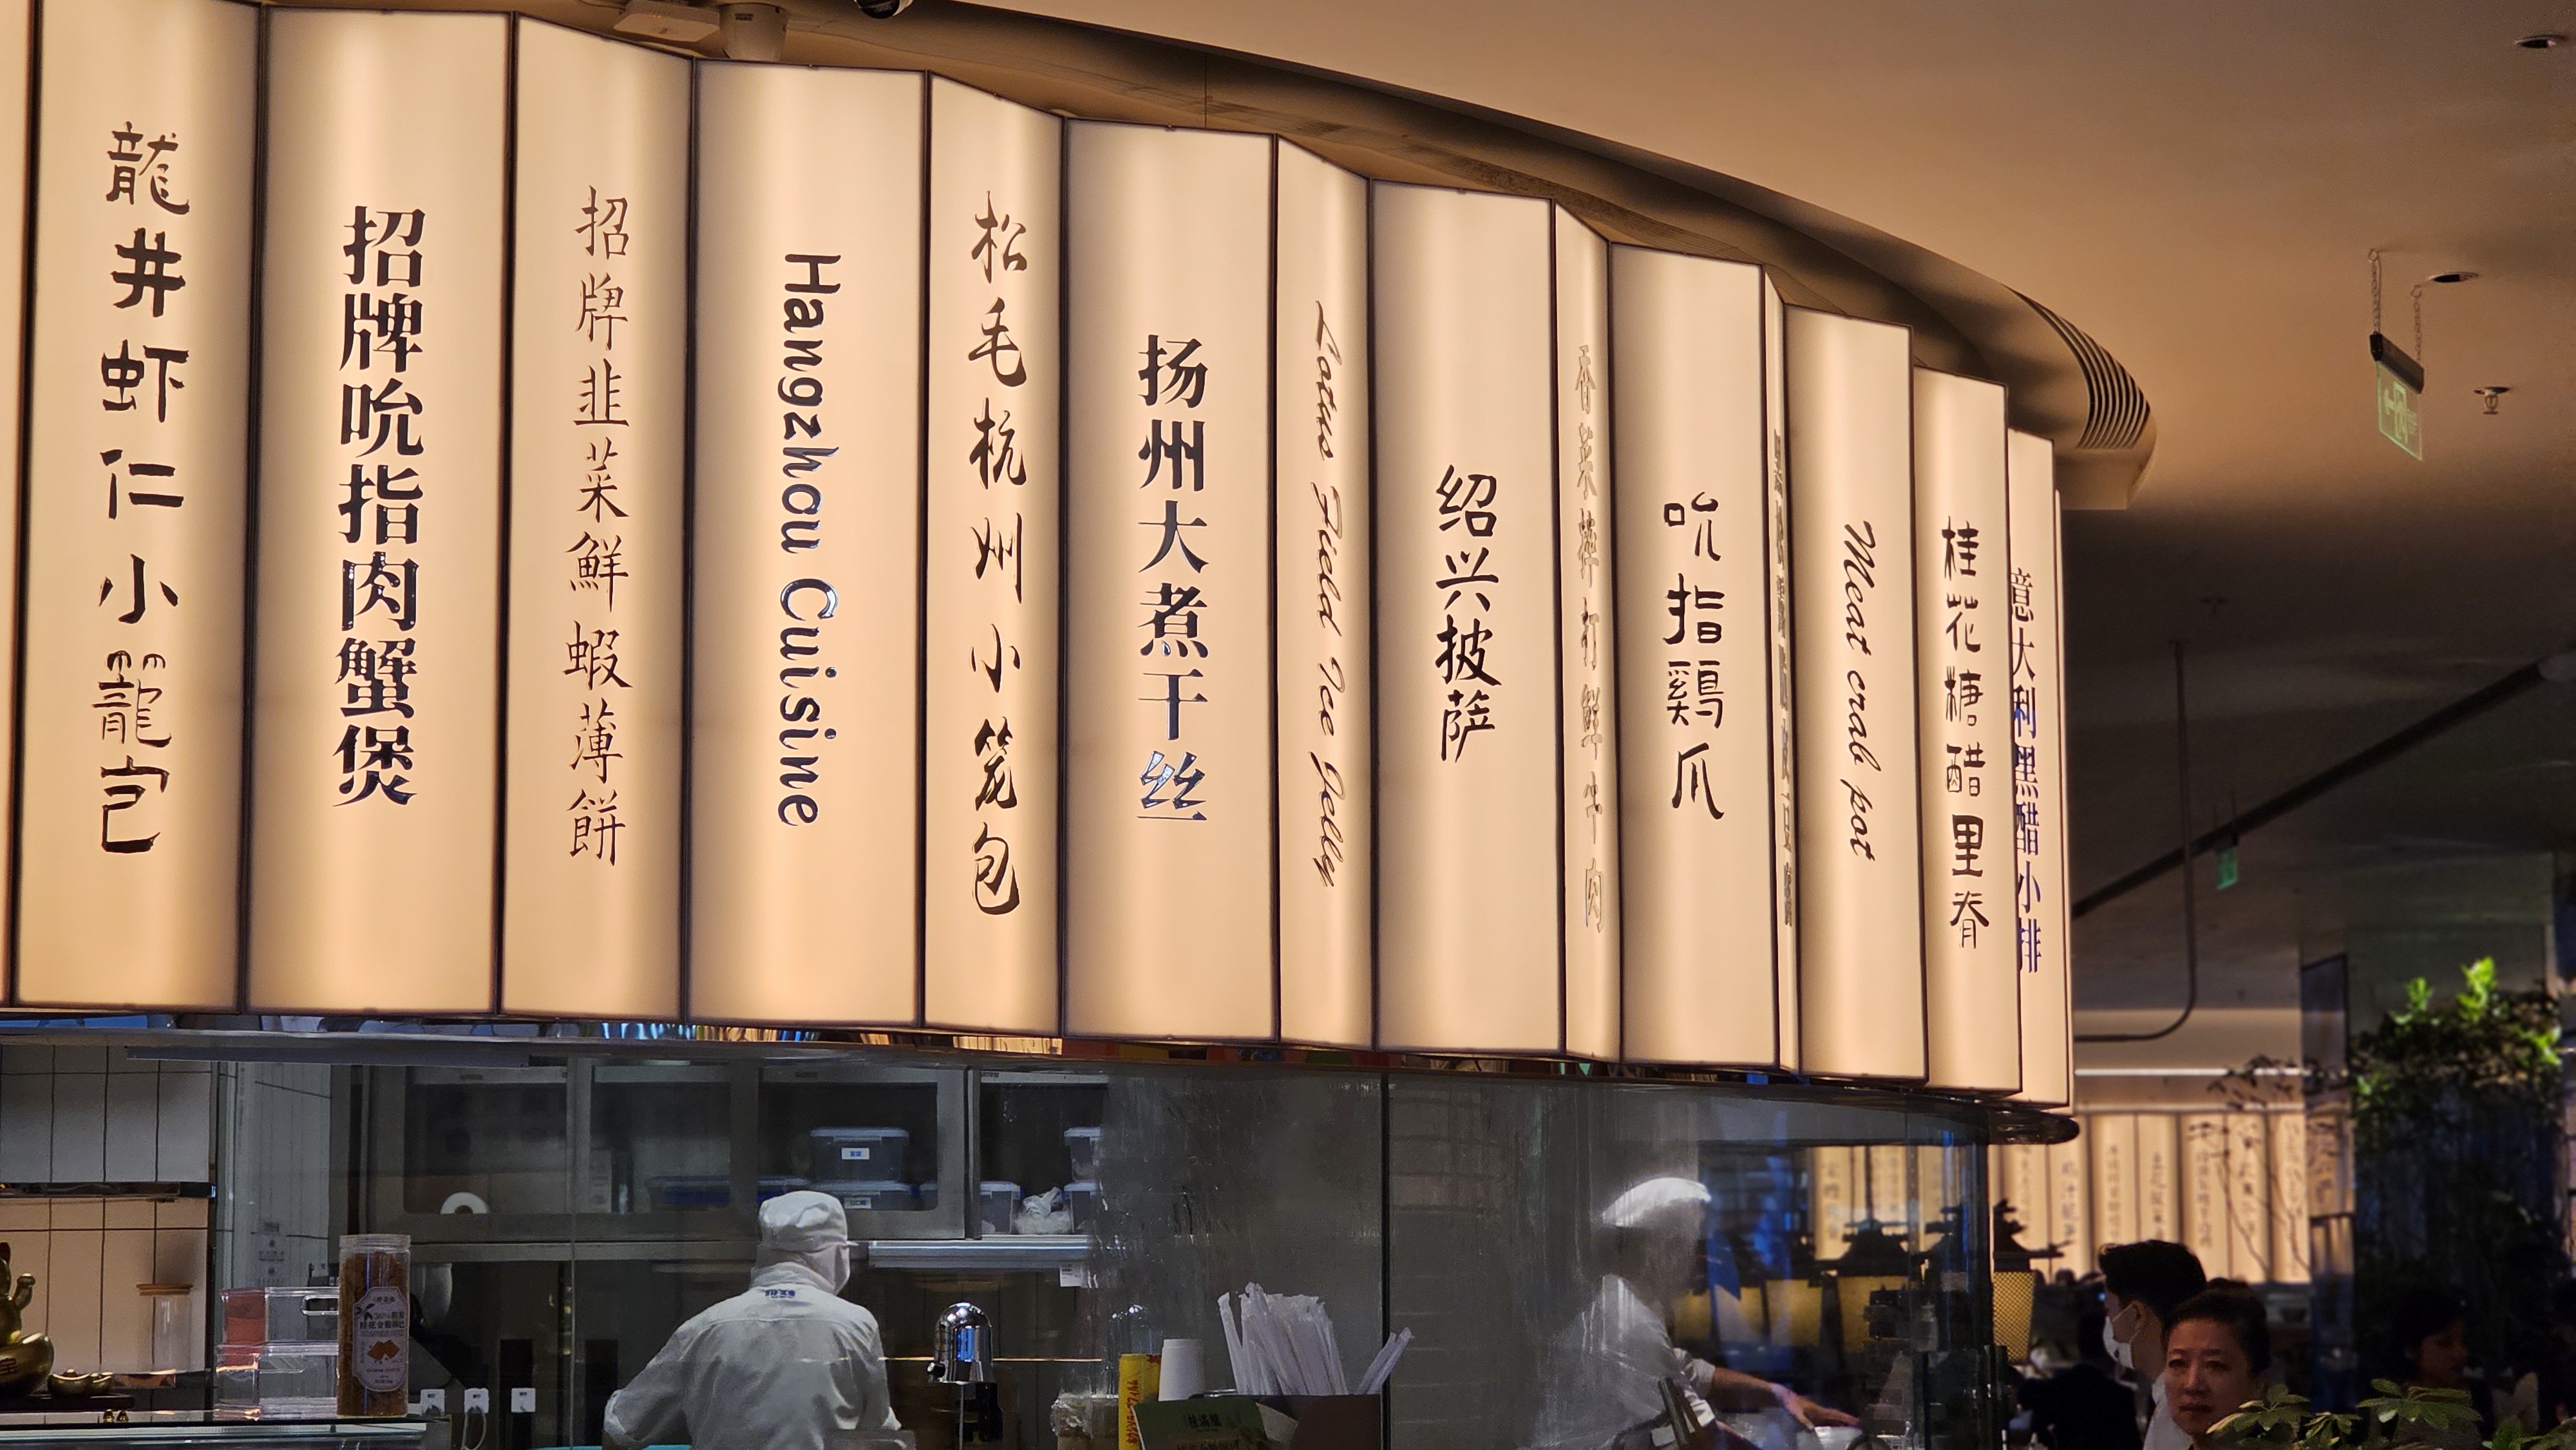 龍井虾仁小籠包
招牌吮指肉蟹煲
招牌韭菜鮮蝦薄餅
Hangzhou Cuisine
松毛杭州小笼包
扬州大煮干丝
Lotus Field Ice Jelly
绍兴披萨
香菜摔打鲜牛肉
吮指鷄爪
Meat crab pot
桂花糖醋里脊
意大利黑醋小排